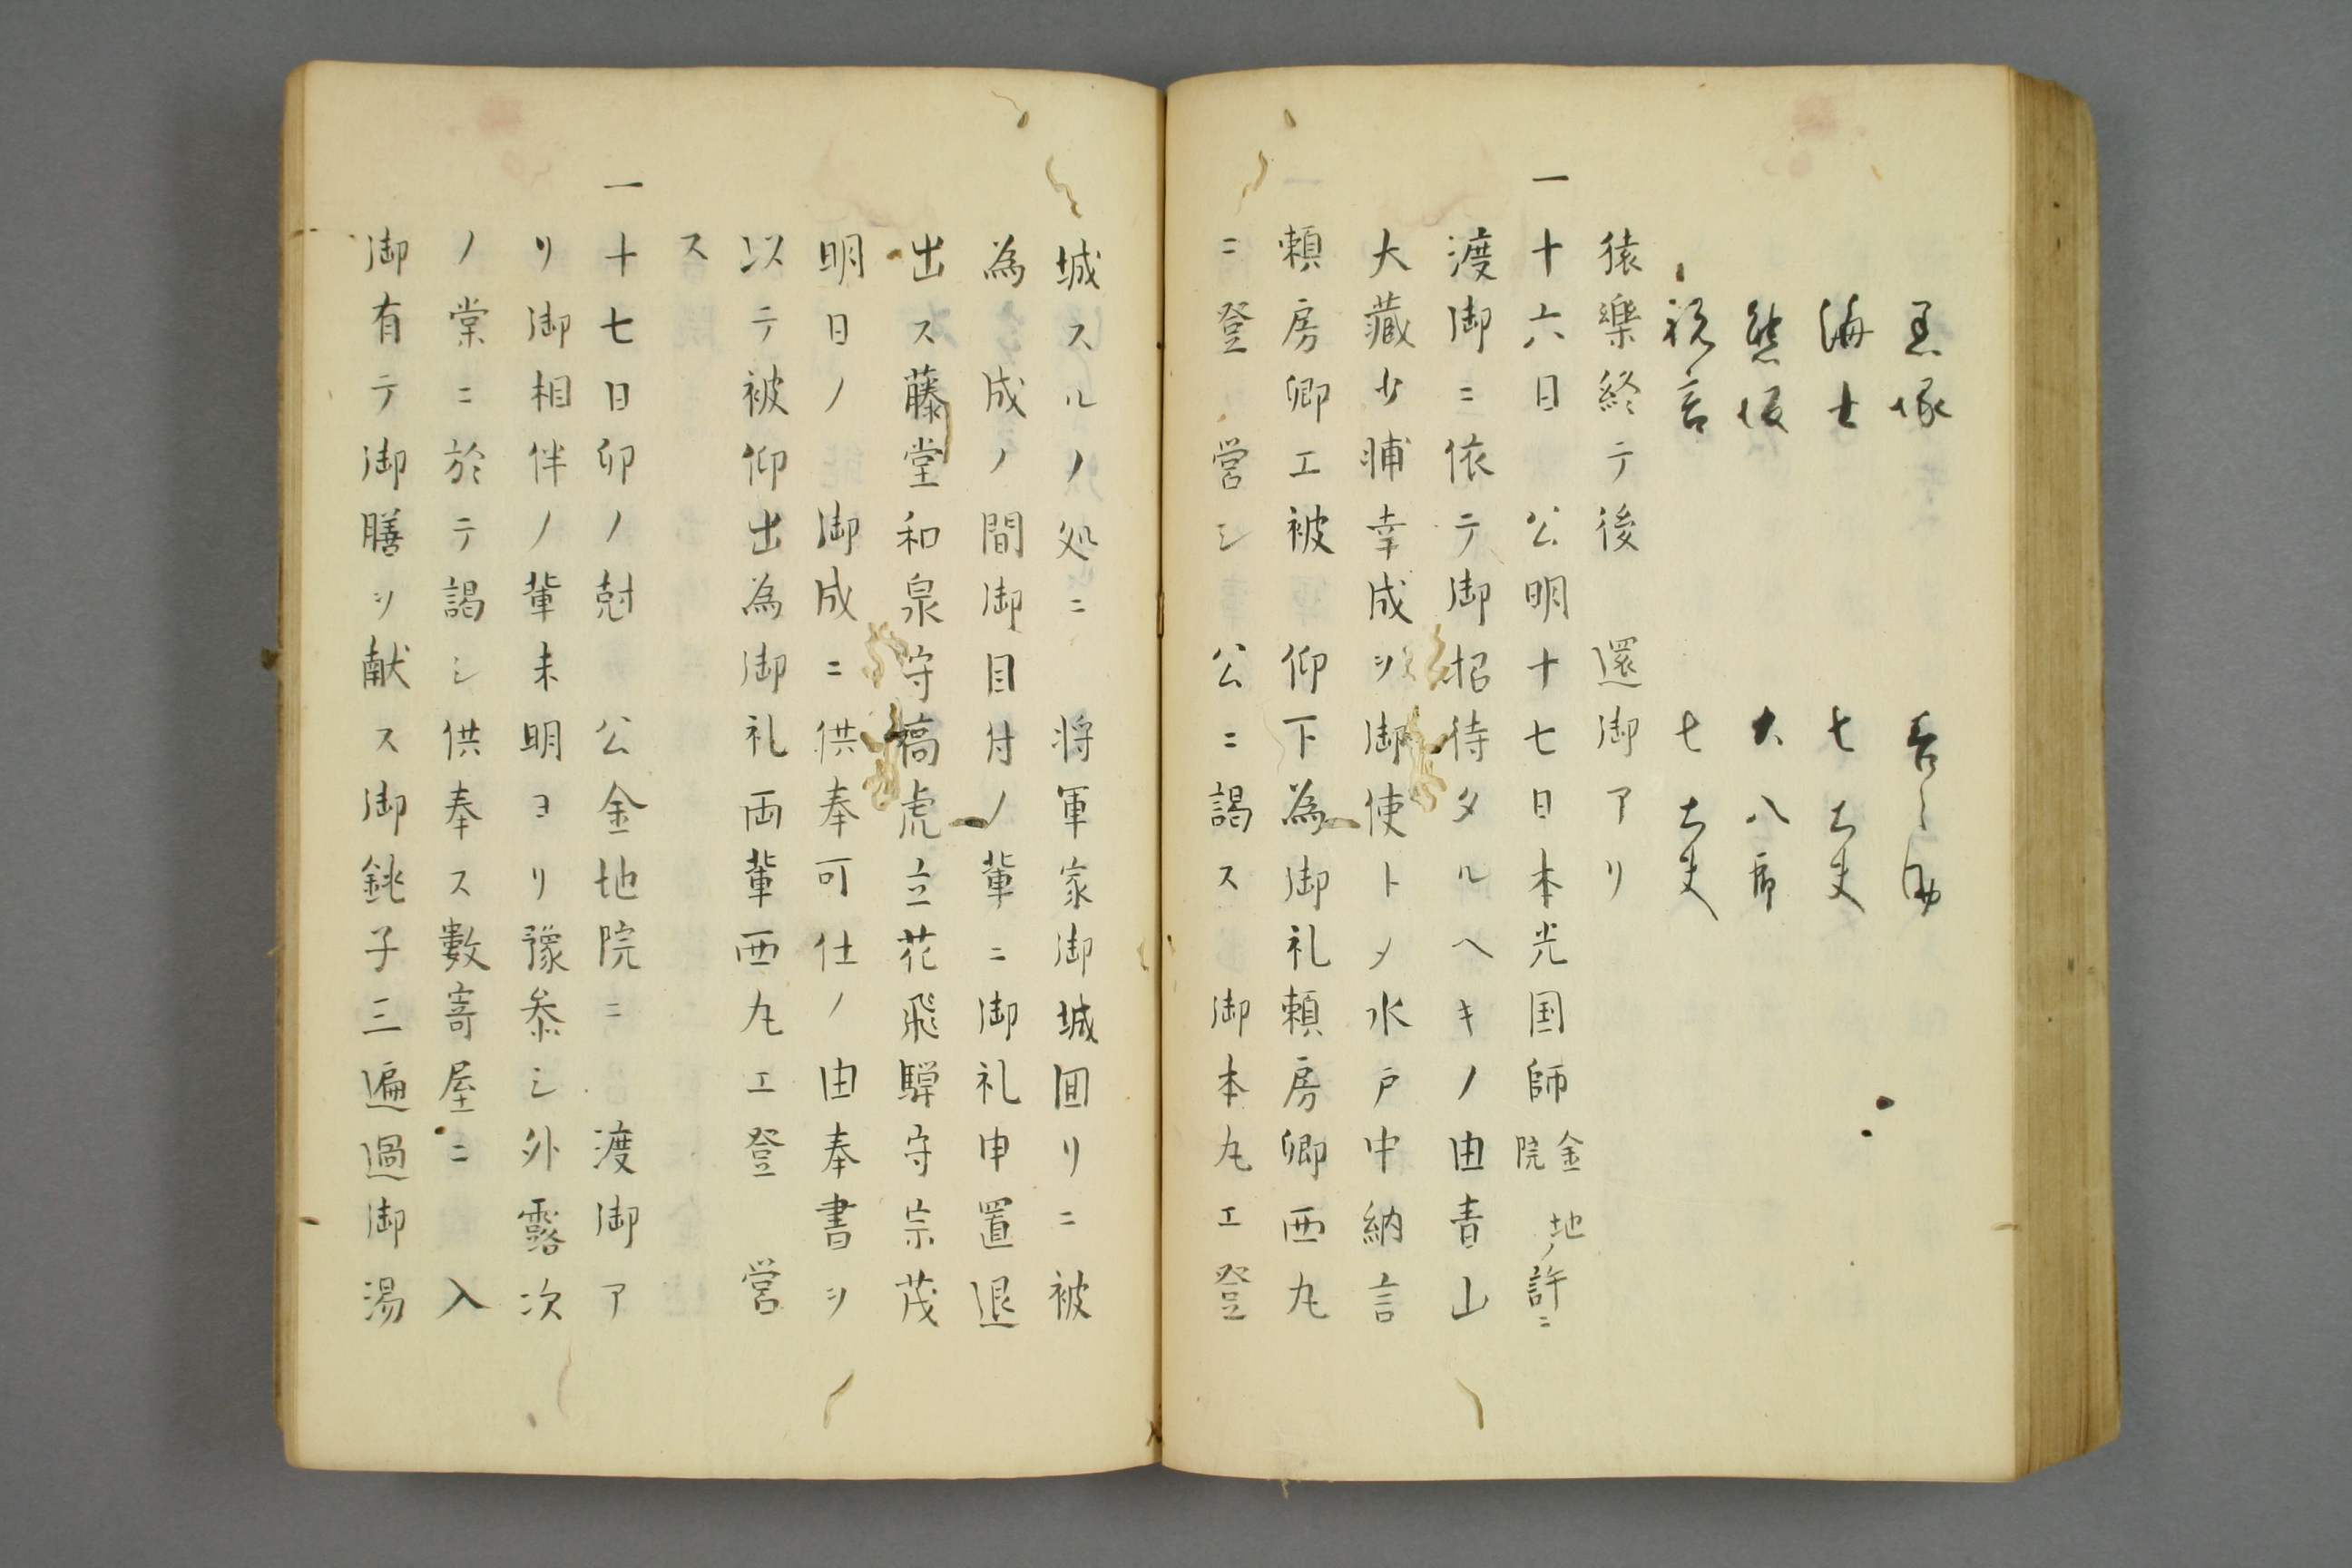 黒塚 吾之助
海士 七太夫
熊坂 大八郎
祝言 七太夫
猿樂終テ後 還御アリ
一十六日 公明十七日本光国師金地院ノ許ニ
渡御ニ依テ御招待タルヘキノ由青山
大藏少輔幸成ヲ御使トメ水戸中納言
頼房卿エ被 仰下為御礼頼房卿西丸
ニ登 営シ 公ニ謁ス 御本丸エ登
城スルノ処ニ 将軍家御城囬リニ被
為 成ノ間御目付ノ輩ニ御礼申置退
出ス藤堂和泉守高虎立花飛騨守宗茂
明日ノ 御成ニ供奉可仕ノ由奉書ヲ
以テ被仰出為御礼両輩西丸エ登 営
ス
一十七日卯ノ尅 公金地院ニ 渡御ア
リ御相伴ノ輩未明ヨリ豫参シ外露次
ノ棠ニ於テ謁シ供奉ス數寄屋ニ 入
御有テ御膳ヲ献ス御銚子三遍過御湯